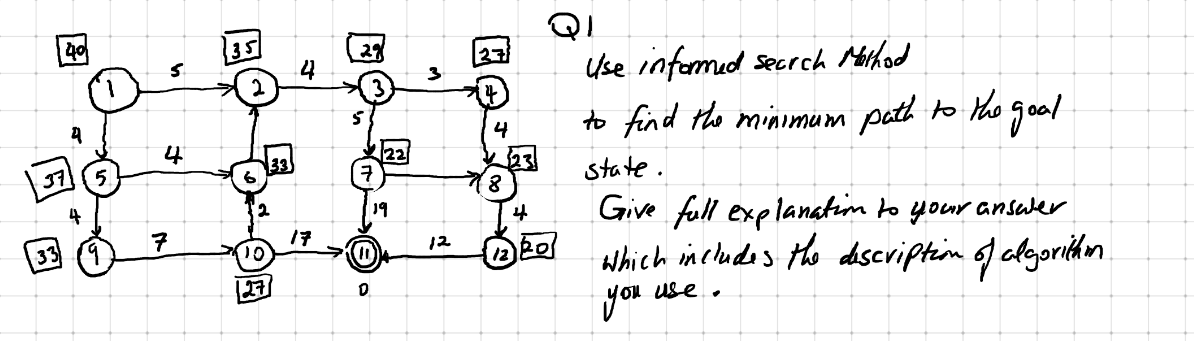 Q1
40 35 29 27
1 5 2 4 3 3 4
4 5 4
37 5 4 6 33 7 22 8 23
4 2 19 4
33 9 7 10 17 11 12 12 20
27 0
Use informed search Method
to find the minimum path to the goal
state.
Give full explanation to your answer
which includes the description of algorithm
you use.